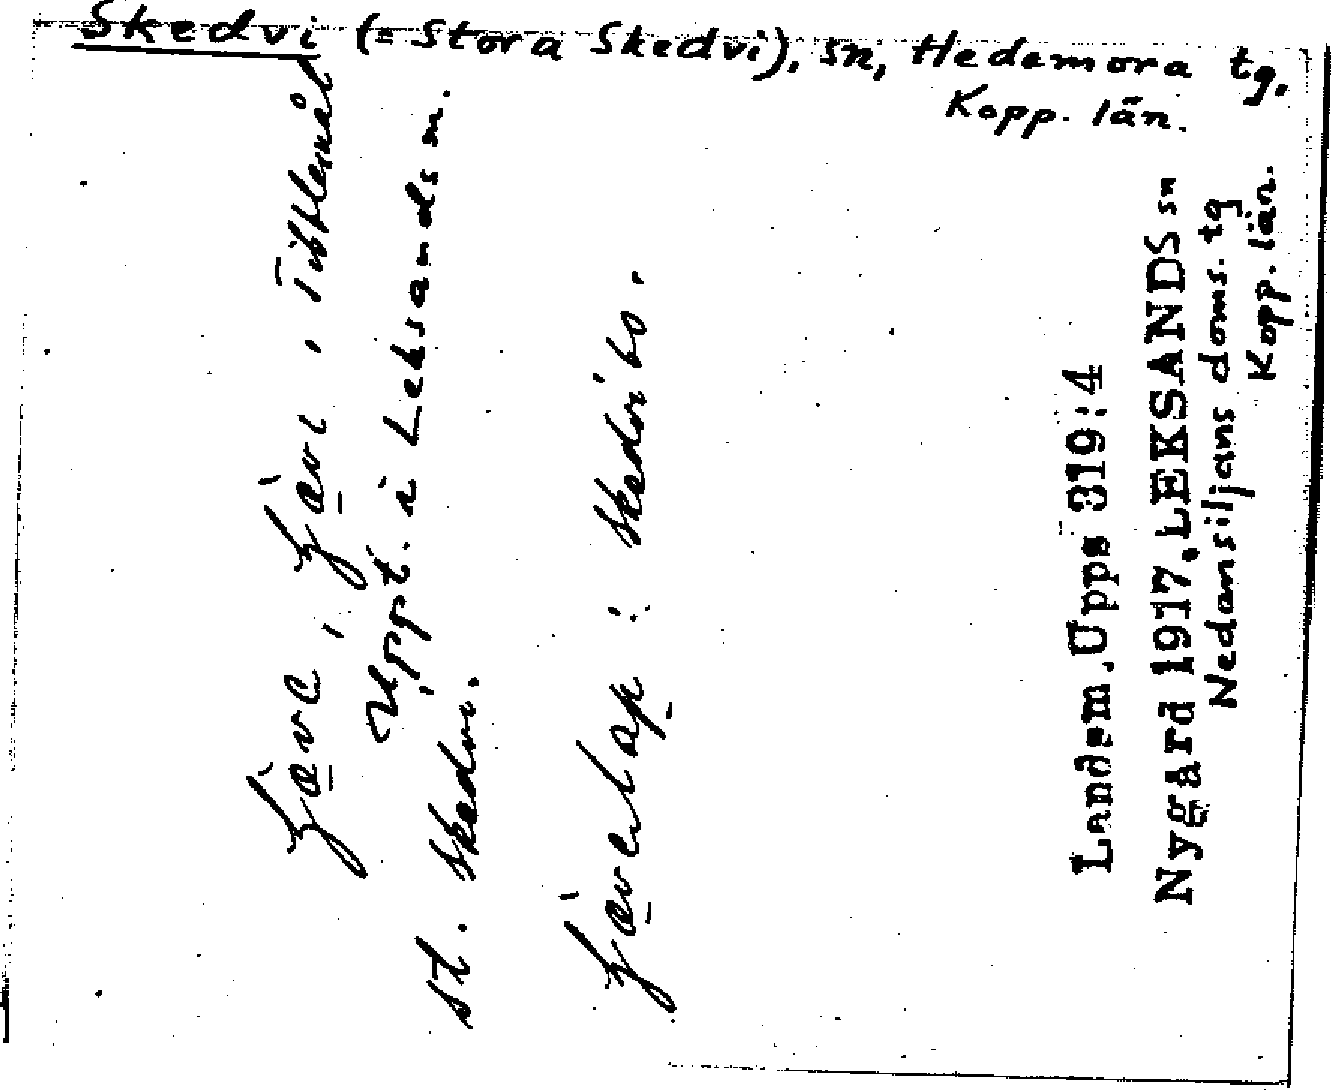 Skedvi (= Stora Skedvi), sn, Hedemora tg.
Kopp. län.
Landsm. Upps 319:4
Nygård 1917. LEKSANDS sn
Nedansiljans doms. tg
Kopp. län.
i Tibblemål
Uppt. i Leksands sn.
St. Skedvi.
: Skedvibo.